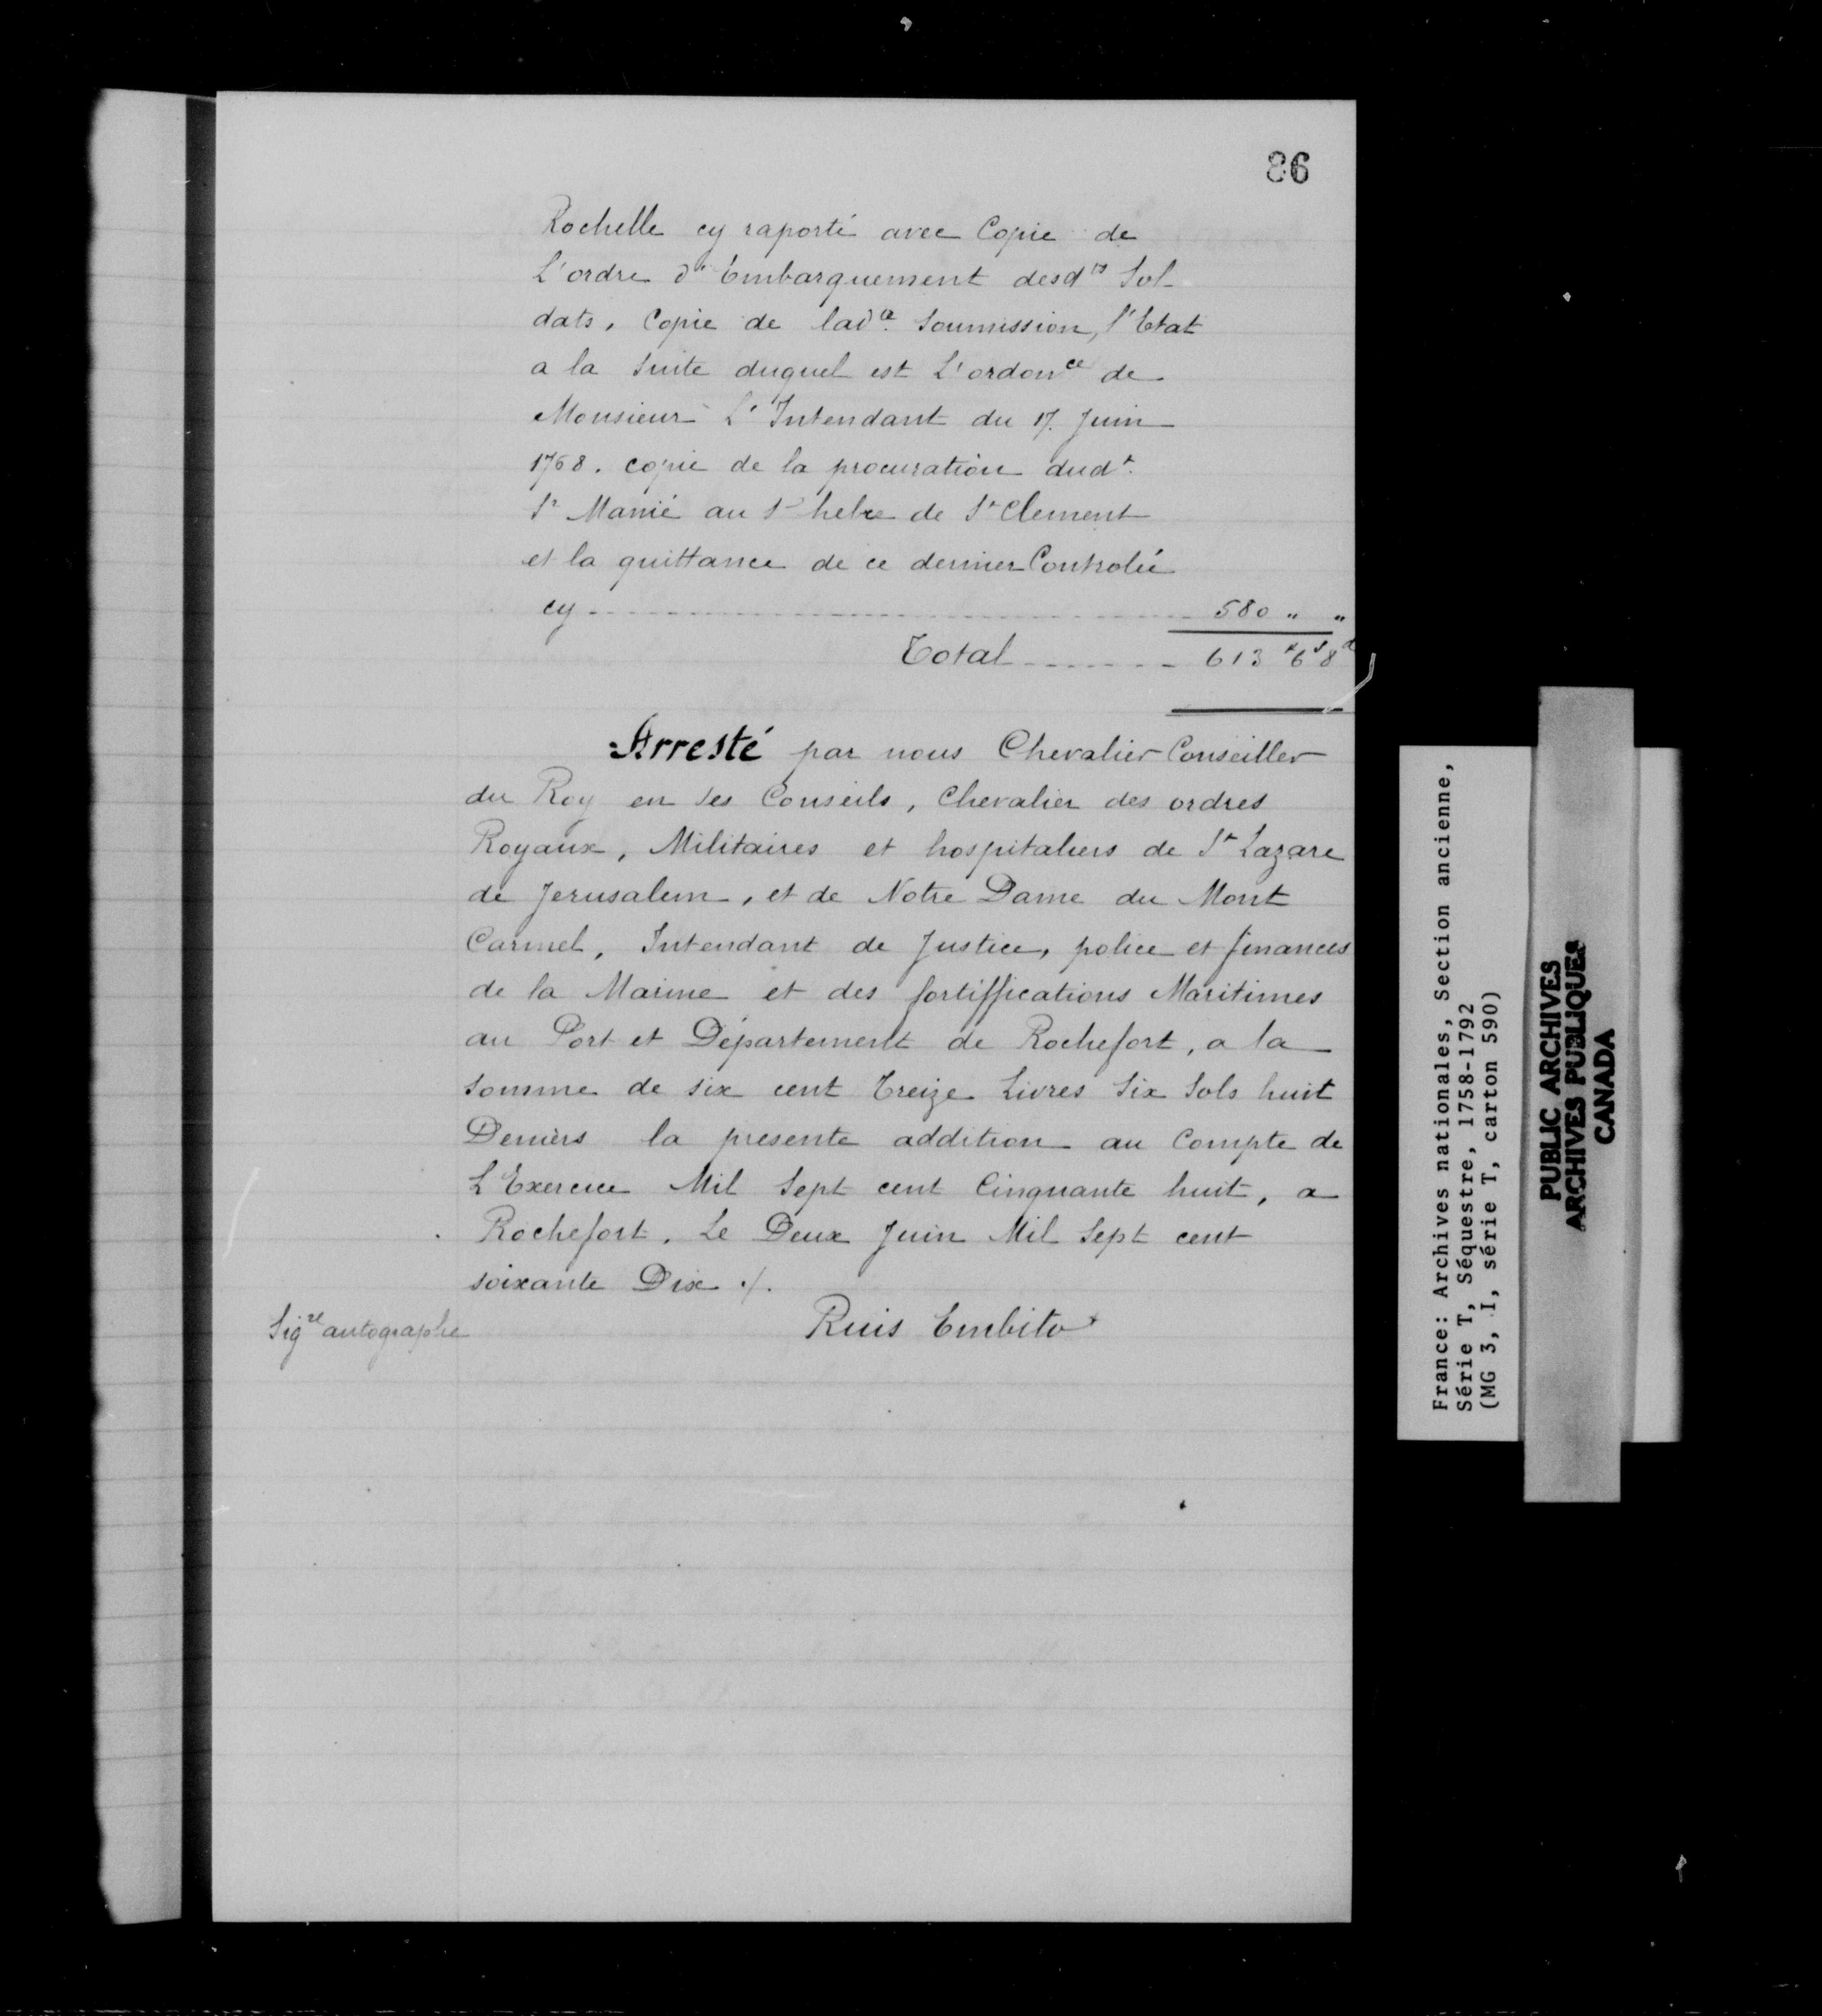 86
Rochelle cy raporté avec Copie de
L'ordre d'Embarquement desdts Sol-
dats, Copie de lade. Soumission, l'Etat
a la Suite duquel est L'ordonce de
Monsieur L'Intendant du 17. Juin
1768. copie de la procuration dudt.
Sr Manié au Sr hebre de St Clement
et la quittance de ce dernier Controlée
cy 580 " "
Total 613 ₶ 6 s 8 d
Arresté par nous Chevalier Conseiller
du Roy en ses Conseils, Chevalier des ordres
Royaux, Militaires et hospitaliers de St Lazare
de Jerusalem, et de Notre Dame du Mont
Carmel, Intendant de Justice, police et finances
de la Marine et des fortiffications Maritimes
au Port et Département de Rochefort, a la
Somme de six cent Treize Livres Six Sols huit
Deniers la presente addition au Compte de
L'Exercice Mil Sept cent Cinquante huit, a
Rochefort, Le Deux Juin Mil Sept cent
soixante Dix ./.
Sigre autographe
Ruis Embito
France: Archives nationales, Section ancienne,
Série T, Séquestre, 1758-1792
(MG 3, I, série T, carton 590)
PUBLIC ARCHIVES
ARCHIVES PUBLIQUES
CANADA